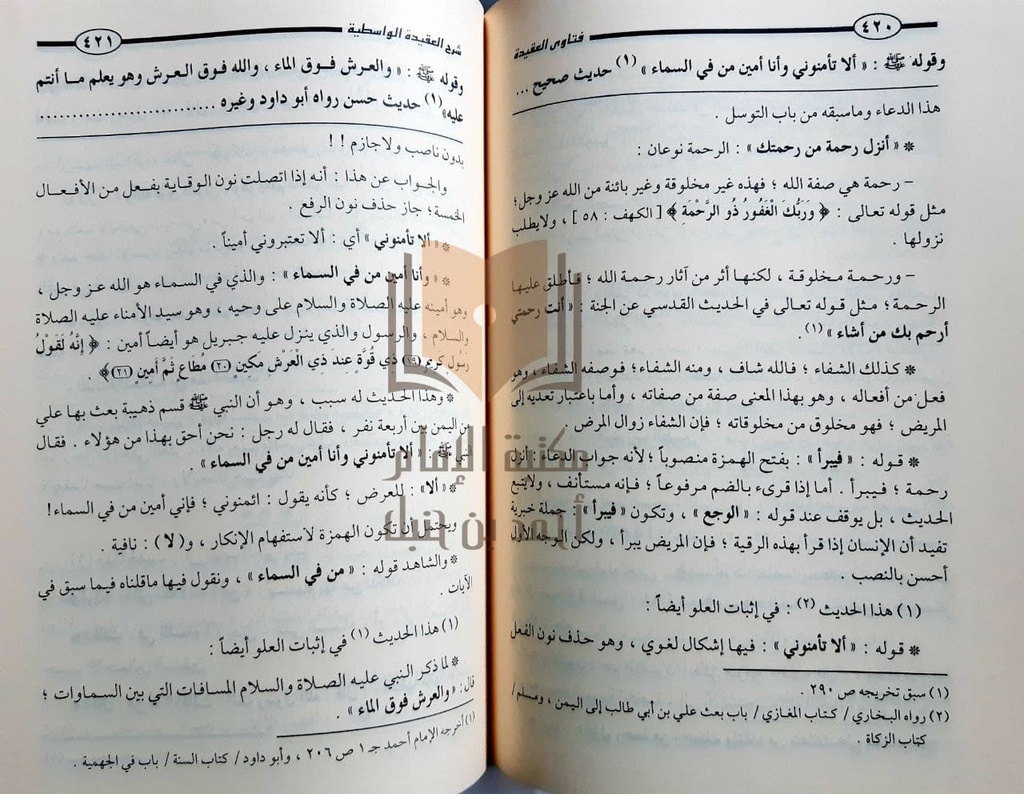 ٤٢٠
فتاوى العقيدة
وقوله ﷺ : « ألا تأمنوني وأنا أمين من في السماء » (١) حديث صحيح ...
هذا الدعاء وماسبقه من باب التوسل .
* « أنزل رحمة من رحمتك » : الرحمة نوعان :
– رحمة هي صفة الله ؛ فهذه غير مخلوقة وغير بائنة من الله عز وجل؛
مثل قوله تعالى : ﴿ وَرَبُّكَ الْغَفُورُ ذُو الرَّحْمَةِ ﴾ [ الكهف : ٥٨ ] ، ولايطلب
نزولها .
– ورحمة مخلوقة ، لكنها أثر من آثار رحمة الله ؛ فأطلق عليها
الرحمة؛ مثل قوله تعالى في الحديث القدسي عن الجنة : « أنت رحمتي
أرحم بك من أشاء » (١).
* كذلك الشفاء ؛ فالله شاف ، ومنه الشفاء؛ فوصفه الشفاء ، وهو
فعل من أفعاله ، وهو بهذا المعنى صفة من صفاته ، وأما باعتبار تعديه إلى
المريض ؛ فهو مخلوق من مخلوقاته ؛ فإن الشفاء زوال المرض .
* قوله : « فيبرأ » : بفتح الهمزة منصوباً ؛ لأنه جواب الدعاء : أنزل
رحمة ؛ فيبرأ . أما إذا قرىء بالضم مرفوعاً ؛ فإنه مستأنف ، ولايتبع
الحديث ، بل يوقف عند قوله : « الوجع » ، وتكون « فيبرأ » : جملة خبرية
تفيد أن الإنسان إذا قرأ بهذه الرقية ؛ فإن المريض يبرأ ، ولكن الوجه الأول
أحسن بالنصب .
(١) هذا الحديث (٢) : في إثبات العلو أيضاً :
* قوله : « ألا تأمنوني » : فيها إشكال لغوي ، وهو حذف نون الفعل
(١) سبق تخريجه ص ٢٩٠ .
(٢) رواه البخاري / كتاب المغازي / باب بعث علي بن أبي طالب إلى اليمن ، ومسلم /
كتاب الزكاة .
شرح العقيدة الواسطية
٤٢١
وقوله ﷺ : « والعرش فوق الماء ، والله فوق العرش وهو يعلم ما أنتم
عليه» (١) حديث حسن رواه أبو داود وغيره ......................
بدون ناصب ولاجازم !!
والجواب عن هذا : أنه إذا اتصلت نون الوقاية بفعل من الأفعال
الخمسة ؛ جاز حذف نون الرفع .
* « ألا تأمنوني » أي : ألا تعتبروني أميناً .
* « وأنا أمين من في السماء » : والذي في السماء هو الله عز وجل ،
وهو أمينه عليه الصلاة والسلام على وحيه ، وهو سيد الأمناء عليه الصلاة
والسلام ، والرسول والذي ينزل عليه جبريل هو أيضاً أمين : ﴿ إِنَّهُ لَقَوْلُ
رَسُولٍ كَرِيمٍ (١٩) ذِي قُوَّةٍ عِندَ ذِي الْعَرْشِ مَكِينٍ (٢٠) مُطَاعٍ ثَمَّ أَمِينٍ (٢١)﴾ .
* وهذا الحديث له سبب ، وهو أن النبي ﷺ قسم ذهيبة بعث بها علي
من اليمن بين أربعة نفر ، فقال له رجل : نحن أحق بهذا من هؤلاء . فقال
النبي ﷺ : « ألا تأمنوني وأنا أمين من في السماء » .
* «ألا» : للعرض ؛ كأنه يقول : ائمنوني ؛ فإني أمين من في السماء!
ويحتمل أن تكون الهمزة لاستفهام الإنكار ، و(لا ) : نافية .
* والشاهد قوله : « من في السماء » ، ونقول فيها ماقلناه فيما سبق في
الآيات .
(١) هذا الحديث (١) في إثبات العلو أيضاً :
* لما ذكر النبي عليه الصلاة والسلام المسافات التي بين السماوات ؛
قال : « والعرش فوق الماء » .
(١) أخرجه الإمام أحمد جـ ١ ص ٢٠٦ ، وأبو داود / كتاب السنة / باب في الجهمية .
مكتبة الإمام
أحمد بن حنبل